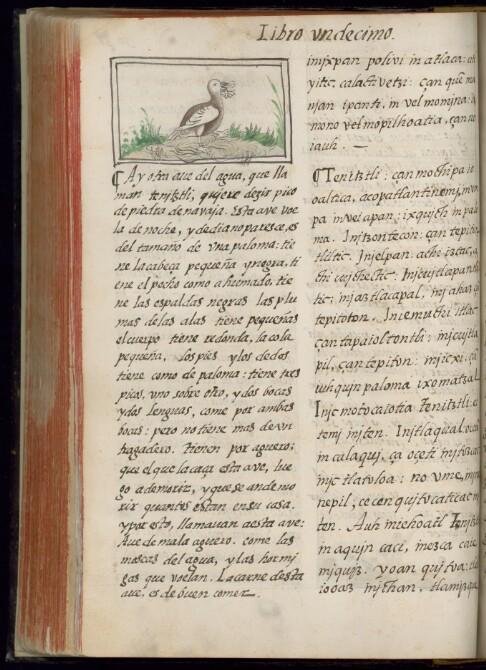 Libro vndecimo.
¶ Ay otra aue del agua, que lla
man tenitztli, quiere dezir pico
de piedra de nauaja. Esta aue voe
la de noche, y de dia no paresce, es
del tamaño de vna paloma: tie
ne la cabeça pequeña y negra, ti
ene el pecho como ahumado, tie
ne las espaldas negras las plu
mas de las alas tiene pequeñas
el cuerpo tiene redondo, la cola
pequeña, los pies y los dedos
tiene como de paloma: tiene tres
picos, vno sobre otro, y dos bocas
y dos lenguas, come por ambas
bocas: pero no tiene mas de vn
tragadero. Tienen por aguero:
que el que la caça esta aue, lue
go a de morir, y que se an de mo
rir quantos estan en su casa.
y por esto, llamauan a esta aue:
Aue de mala aguero. come las
moscas del agua, y las hormi
gas que voelan. La carne desta
aue, es de buen comer.
imjxpan polivi in atlaca:
yitic, calactivetzi: çan que
njan ipanti, in vel momjna:
mono vel mopilhoatia, çan
iauh.
¶ Tenitztli: çan mochipa
oaltica, acopatlantinemj,
pa in vei apan: ixqujch in
ma. Injtzontecon: çan tepito
tliltic. Injelpan: achi iztac,
chi cujchectic. Injcujtlapan
tic; injaztlacapal,
tepitoton. Iniemuchi itlac
çan tapaioltontli: injcujtla
pil, çan tepiton: injicxi,
iuhqujn paloma ixomatzal
Injc motocaiotia tenitztli:
temj injten. Injtlaqual,
in calaquj, ça oçeti
injc tlatoloa: no vme, inj
nepil, cecen
ten. Auh in iehoatl
in aqujn caci,
mjqujz. yoan qujtoa: